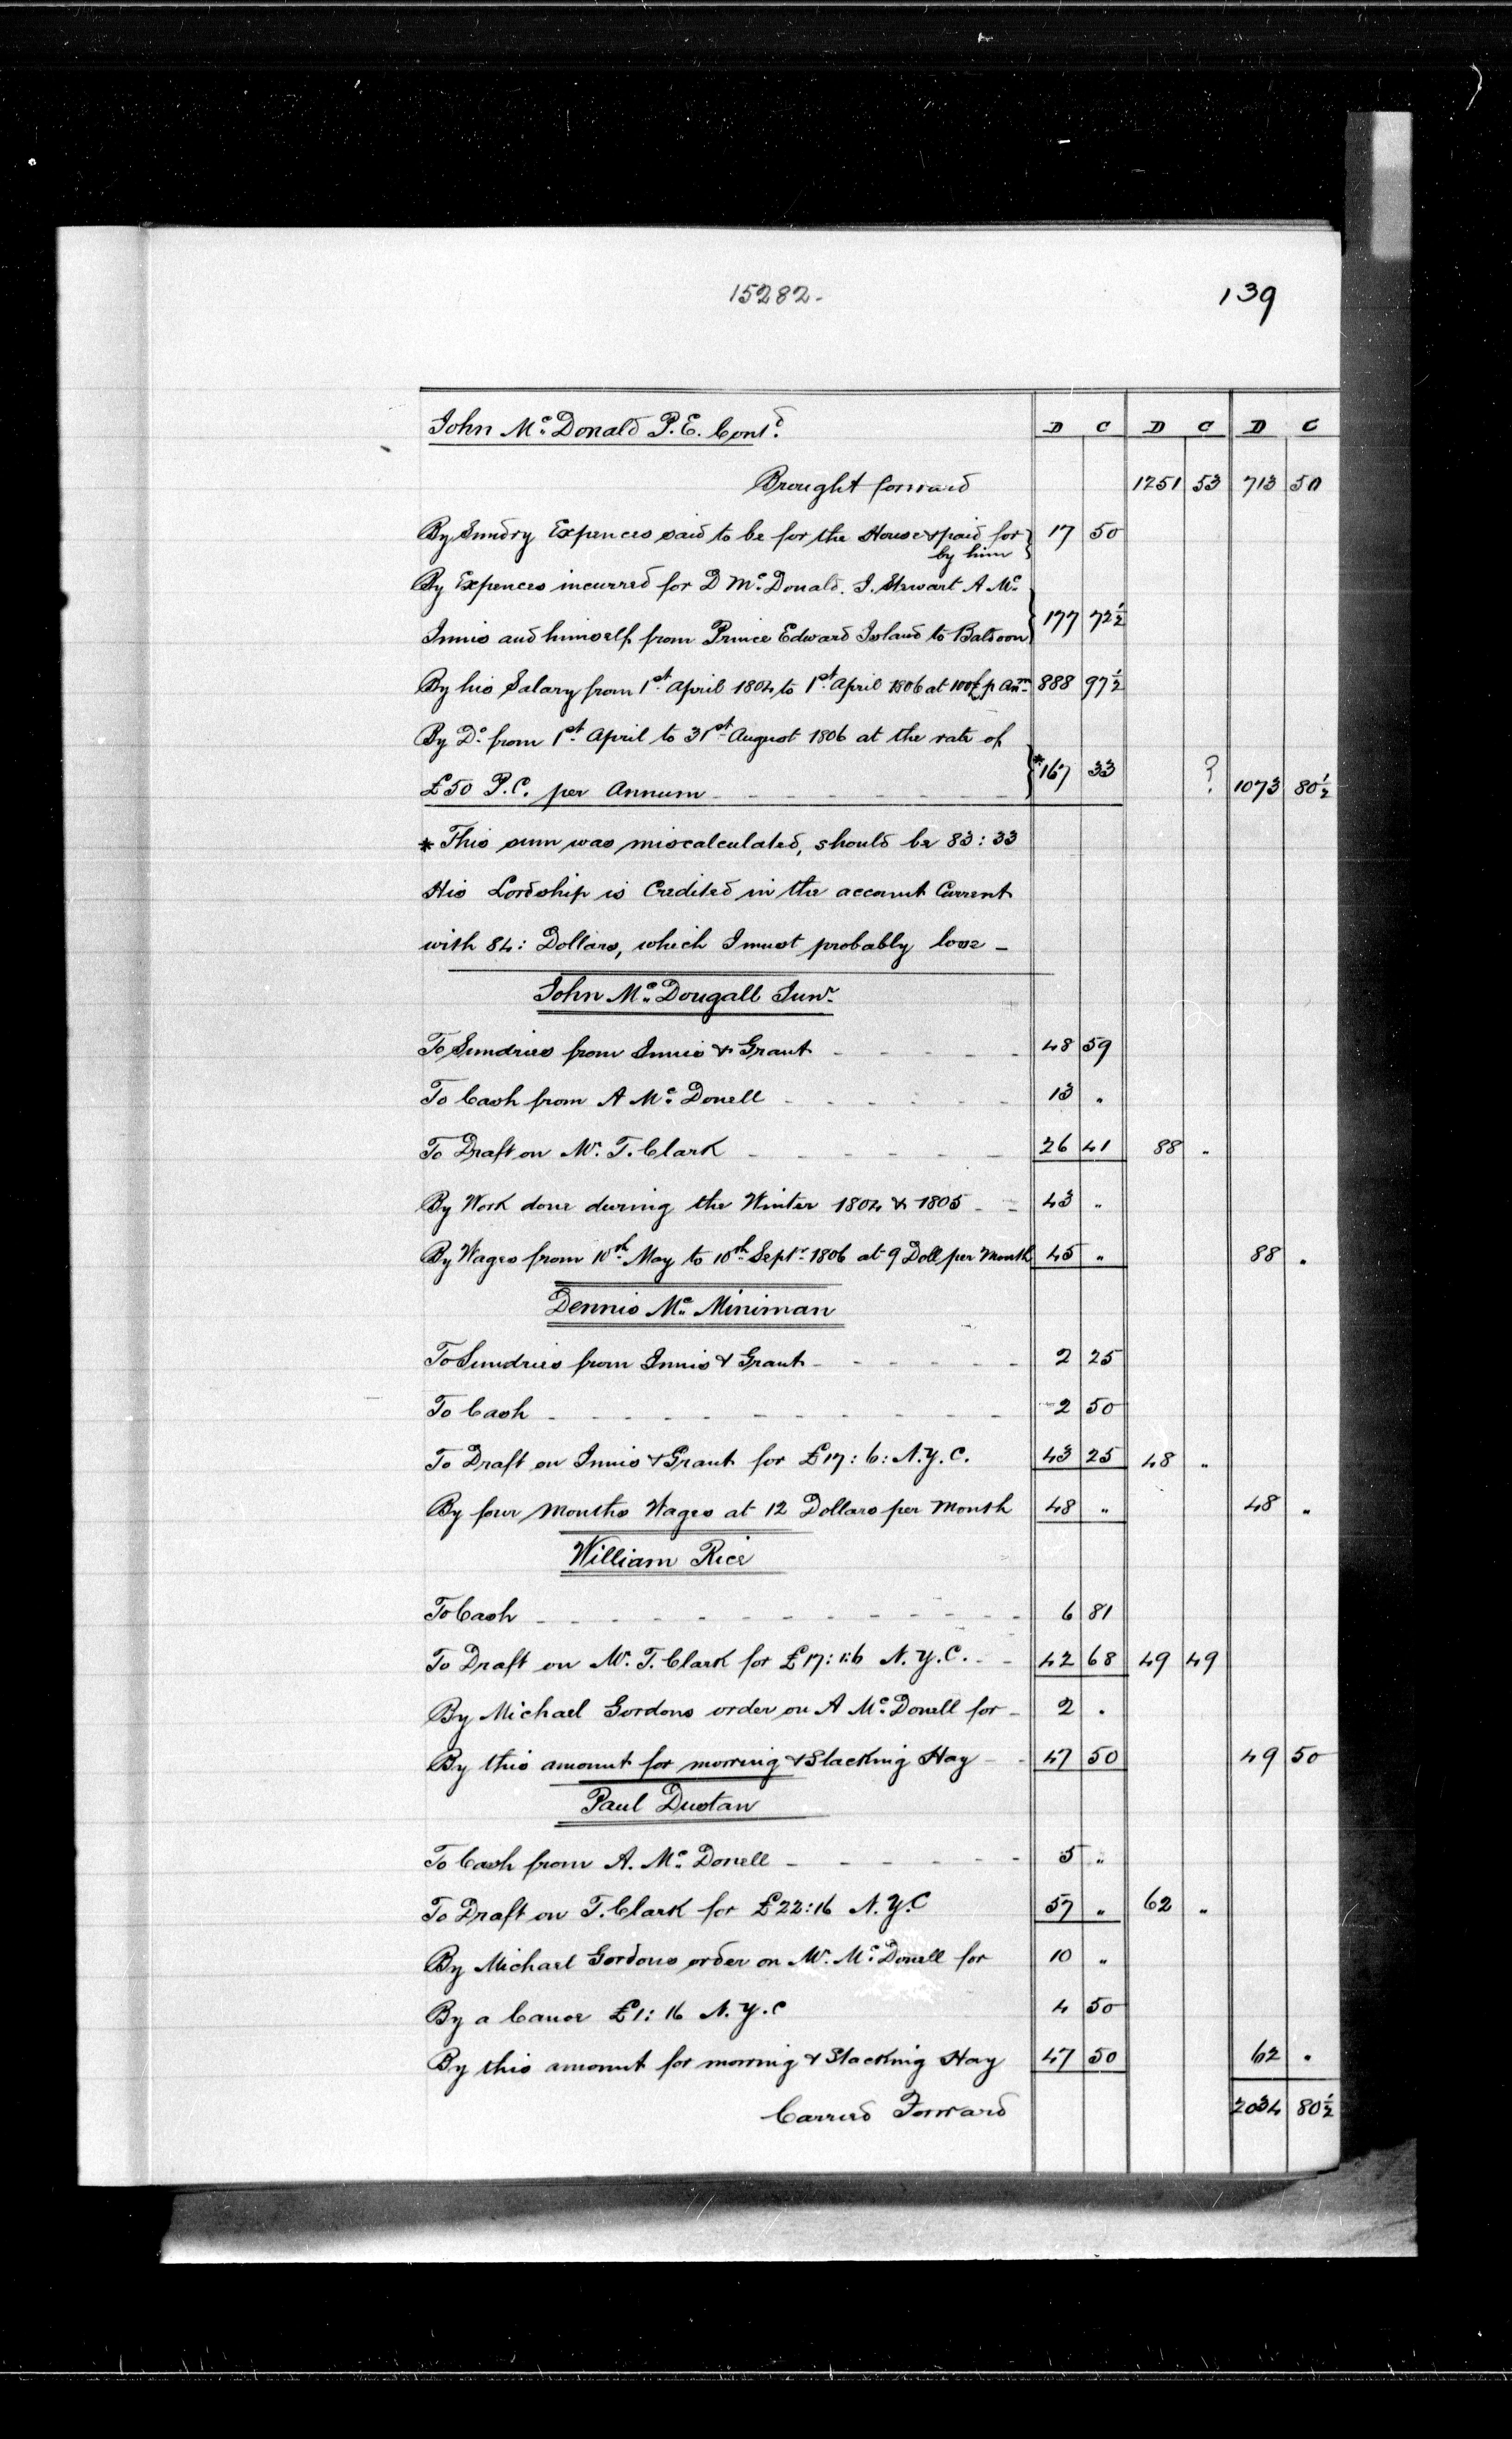 15282.
139
John Mc. Donald P.E. Contd.
D C D C D C
Brought forward 1251 53 713 50
By Sundry Expences said to be for the House & paid for by him 17 50
By Expences incurred for D Mc. Donald. J. Stewart A Mc.
Innis and himself from Prince Edward Island to Baldoon 177 72½
By his Salary from 1st. April 1804 to 1st. April 1806 at 100£ p Anm. 888 97½
By Do. from 1st. April to 31st. August 1806 at the rate of
£50 P.C. per Annum - - - - - - - *167 33 ? 1073 80½
* This sum was miscalculated, should be 83:33
His Lordship is Credited in the account Current
with 84: Dollars, which I must probably lose -
John Mc. Dougall Junr.
To Sundries from Innis & Grant - - - - - 48 59
To Cash from A Mc. Donell - - - - - - 13 "
To Draft on Mr. T. Clark - - - - - - 26 41 88 "
By Work done during the Winter 1804 & 1805 - - 43 "
By Wages from 10th. May to 10th. Septr. 1806 at 9 Doll per Month 45 " 88 "
Dennis Mc. Miniman
To Sundries from Innis & Grant - - - - - - 2 25
To Cash - - - - - - - - - - - 2 50
To Draft on Innis & Grant for £17:6: N.Y.C. 43 25 48 "
By four Months Wages at 12 Dollars per Month 48 " 48 "
William Rice
To Cash - - - - - - - - - - - - 6 81
To Draft on Mr. T. Clark for £17:1:6 N.Y.C. - - 42 68 49 49
By Michael Gordons order on A Mc. Donell for - 2 "
By this amount for mowing & Stacking Hay - - 47 50 49 50
Paul Dustan
To Cash from A. Mc. Donell - - - - - - 5 "
To Draft on T. Clark for £22:16 N.Y.C 57 " 62 "
By Michael Gordons order on Mr. Mc. Donell for 10 "
By a Canoe £1:16 N.Y.C 4 50
By this amount for mowing & Stacking Hay 47 50 62 "
Carried Forward 2034 80½